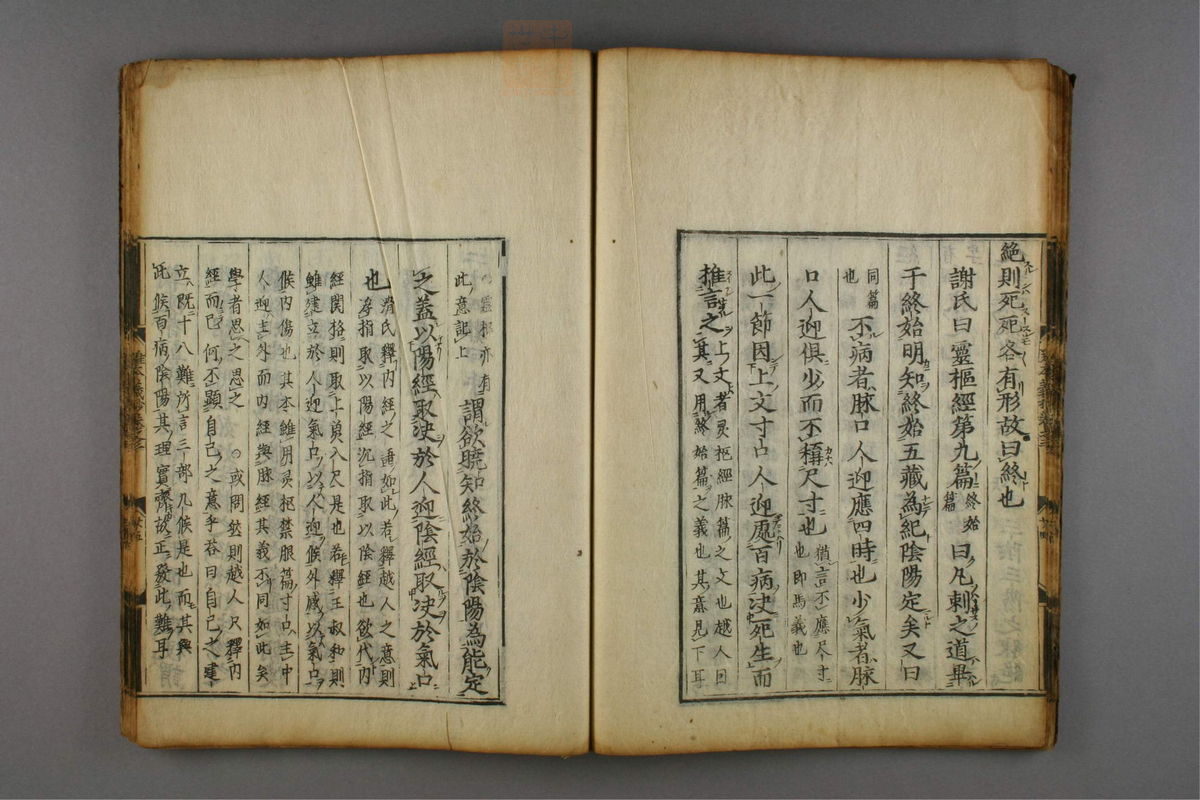 絶則死死各有形故曰終也
謝氏曰靈樞經第九篇終始篇曰凡刺之道畢
于終始明知終始五藏為紀陰陽定矣又曰
同篇也不病者脉口人迎應四時也少氣者脉
口人迎俱少而不稱尺寸也猶言不應尺寸也即馬義也
此一節因上文寸口人迎處百病決死生而
推言之上文者灵枢經脉篇之文也越人因其又用終始篇之義也其意見下耳
灵枢亦有此意記上謂欲曉知終始於陰陽為能定
之蓋以陽經取决於人迎陰經取决於氣口
也滑氏釋内經之通如此若釋越人之意則
浮指取以陽經沉指取以陰經也欲代内
經関格則取上夐入尺是也若釋王叔和則
雖建立於人迎氣口以人迎候外感以氣口
候内傷也其本雖用灵枢禁服篇寸口主中
人迎主外而内經與脉經其義不同如此矣
學者思之思之○或問然則越人只釋内
經而已何不顯自己之意乎荅曰自己之建
立既十八難所言三部九候是也而其與
此候百病陰陽其理實齊故正發此難耳